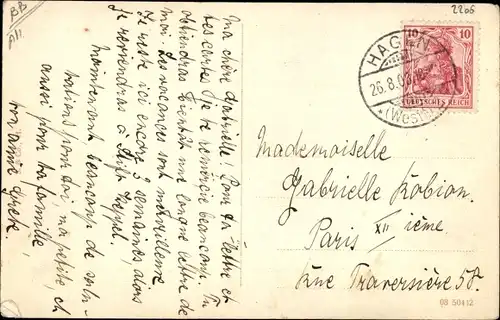 BB
All.
2206
HAGEN
26.8.0
*(WESTF.
10
DEUTSCHES REICH
Ma chère Gabrielle! Pour ta lettre et
tes cartes je te remercie beaucoup. Tu
obtiendras bientôt une longue lettre de
moi. Les vacances sont merveilleuse
Je reste ici encore 3 semaines alors
je reviendrai à
Maintenant beaucoup de salu-
tations pour toi ma petite, et
aussi pour ta famille,
ton amie Grete.
Mademoiselle
Gabrielle Robion.
Paris XII ième
Rue Traversière 58.
08 50412